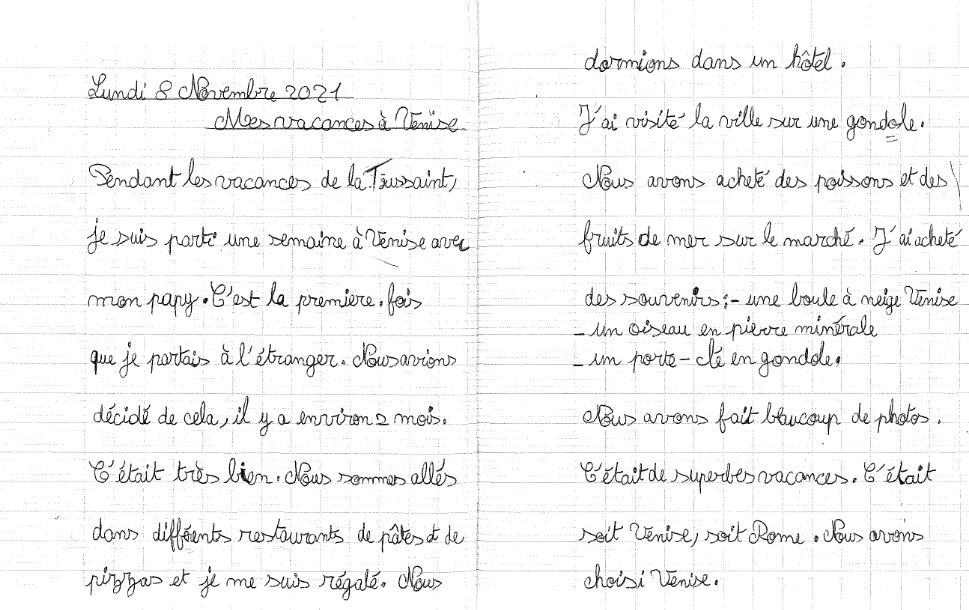 Lundi 8 Novembre 2021
Mes vacances à Venise
Pendant les vacances de la Toussaint,
je suis parti une semaine à Venise avec
mon papy. C'est la premiere fois
que je partais à l'étranger. Nous avions
décidé de cela, il y a environ 2 mois.
C'était très bien. Nous sommes allés
dans différents restaurants de pâtes et de
pizzas et je me suis régalé. Nous
dormions dans un hôtel.
J'ai visité la ville sur une gondole.
Nous avons acheté des poissons et des
fruits de mer sur le marché. J'ai acheté
des souvenirs : - une boule à neige Venise
- un oiseau en pierre minérale
- un porte-clé en gondole.
Nous avons fait beaucoup de photos.
C'était de superbes vacances. C'était
soit Venise, soit Rome. Nous avons
choisi Venise.